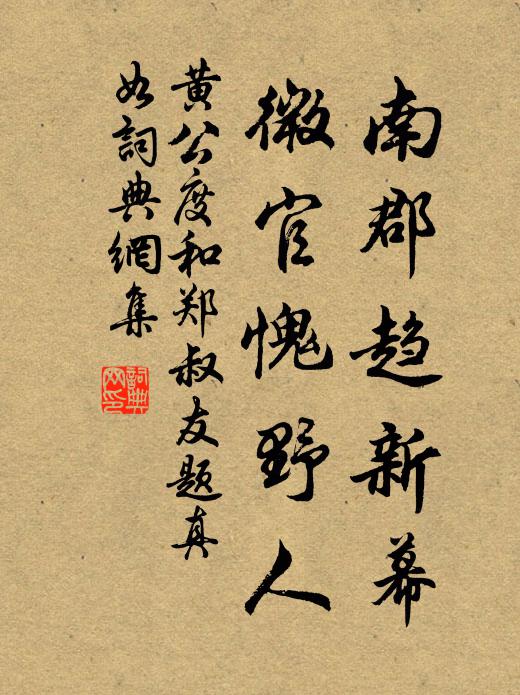 南郡趋新幕
微官愧野人
黄公度和郑叔友题真
如詞典網集
詞典網印